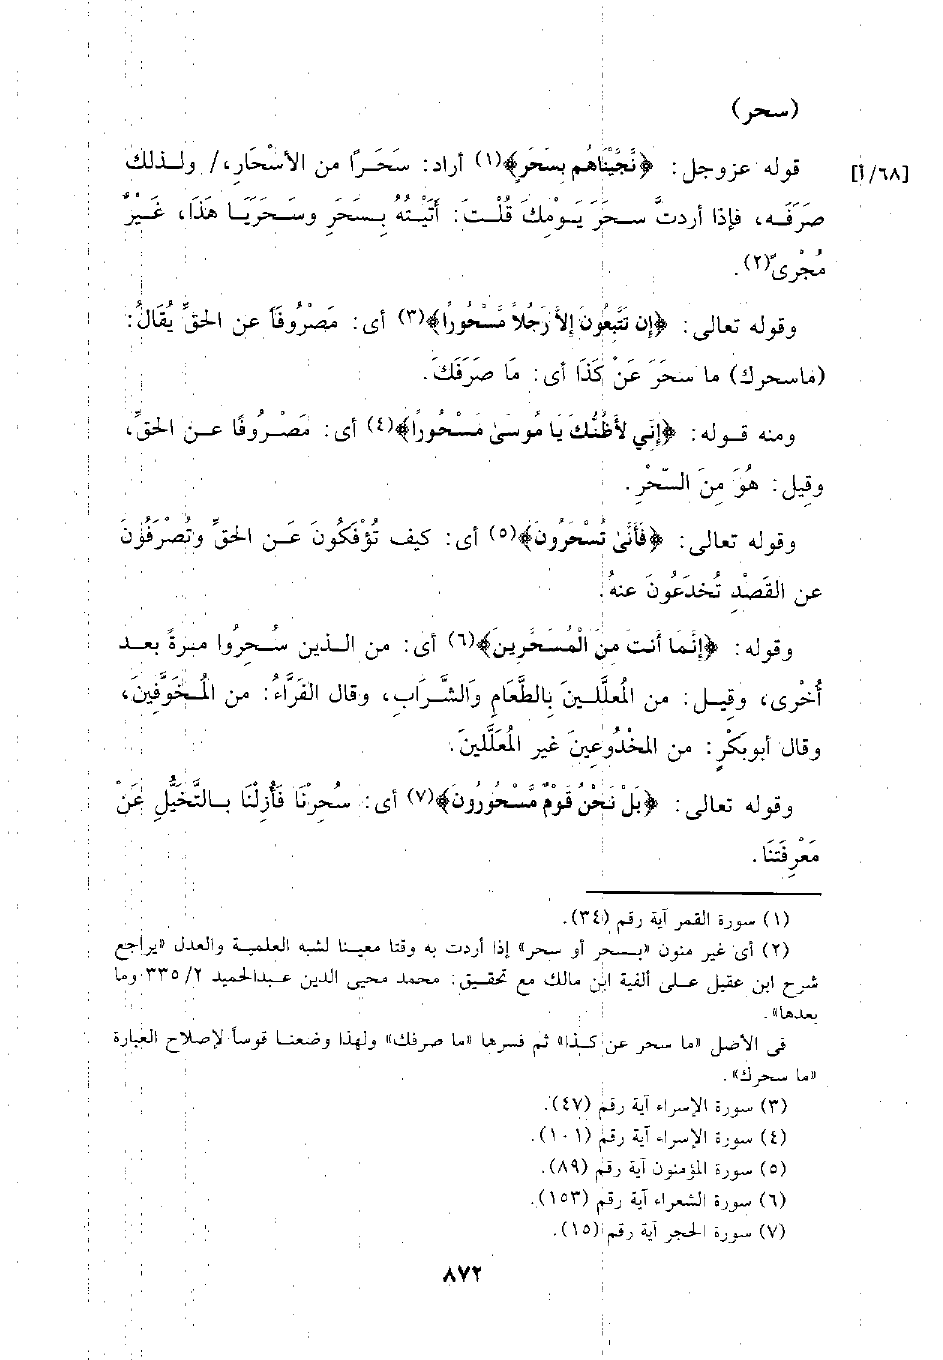 (سحر)
[٦٨/أ] قوله عزوجل: ﴿نَّجَّيْنَاهُم بِسَحَرٍ﴾(١) أراد: سَحَراً من الأسْحَارِ،/ ولذلك
صَرَفَه، فإذا أردتَّ سحَرَ يَوْمِكَ قُلْتَ: أَتَيْتُهُ بِسَحَرَ وسَحَرَيَا هَذَا، غَيْرُ
مُجْرىً(٢).
وقوله تعالى: ﴿إِن تَتَّبِعُونَ إِلاَّ رَجُلاً مَّسْحُوراً﴾(٣) أى: مَصْرُوفَاً عن الحقِّ يُقَالُ:
(ماسحرك) ما سحَرَ عَنْ كَذَا أى: مَا صَرَفَكَ.
ومنه قوله: ﴿إِنِّي لأَظُنُّكَ يَا مُوسَىٰ مَسْحُوراً﴾(٤) أى: مَصْرُوفًا عن الحقِّ،
وقِيل: هُوَ مِنَ السِّحْرِ.
وقوله تعالى: ﴿فَأَنَّىٰ تُسْحَرُونَ﴾(٥) أى: كيف تُؤْفَكُونَ عَنِ الحقِّ وتُصْرَفُوْنَ
عن القَصْدِ تُخدَعُونَ عنهُ.
وقوله: ﴿إِنَّمَا أَنتَ مِنَ الْمُسَحَّرِينَ﴾(٦) أى: من الذين سُحِرُوا مرةً بعد
أُخْرى، وقِيل: من المُعلَّلينَ بِالطَّعَامِ وَالشَّرَابِ، وقال الفَرَّاءُ: من المُخَوَّفِينَ،
وقال أبوبَكْرٍ: من المخْدُوعِينَ غير المُعَلَّلينَ.
وقوله تعالى: ﴿بَلْ نَحْنُ قَوْمٌ مَّسْحُورُونَ﴾(٧) أى: سُحِرْنَا فَأُزِلْنَا بالتَّخَيُّلِ عَنْ
مَعْرِفَتنَا.
(١) سورة القمر آية رقم (٣٤).
(٢) أى غير منون «بسحر أو سحر» إذا أردت به وقتا معينا لشبه العلمية والعدل «يراجع
شرح ابن عقيل على ألفية ابن مالك مع تحقيق: محمد محيى الدين عبدالحميد ٢/ ٣٣٥ وما
بعدها».
فى الأصل «ما سحر عن كذا» ثم فسرها «ما صرفك» ولهذا وضعنا قوساً لإصلاح العبارة
«ما سحرك».
(٣) سورة الإسراء آية رقم (٤٧).
(٤) سورة الإسراء آية رقم (١٠١).
(٥) سورة المؤمنون آية رقم (٨٩).
(٦) سورة الشعراء آية رقم (١٥٣).
(٧) سورة الحجر آية رقم (١٥).
٨٧٢